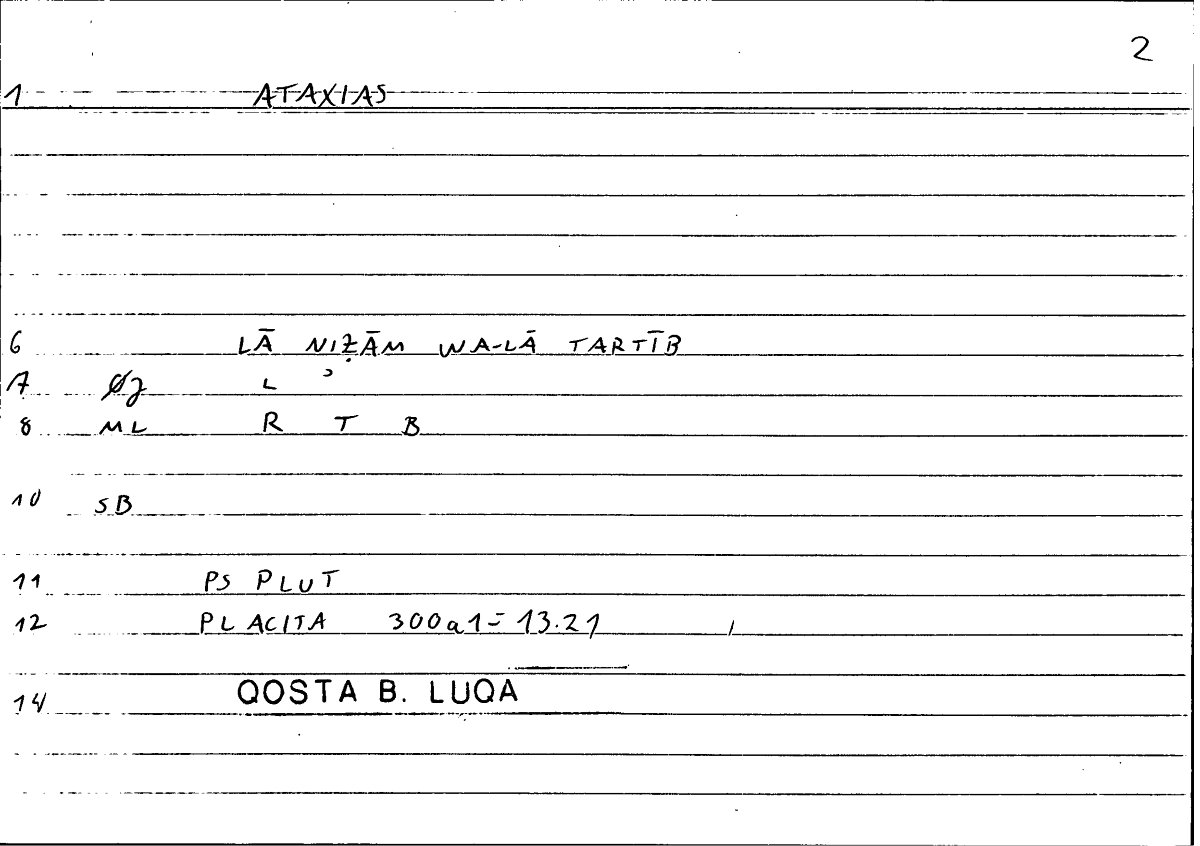 2
1 ATAXIAS
6 LĀ NIẒĀM WA-LĀ TARTĪB
7 L ʾ
8 ML R T B
10 SB
11 PS PLUT
12 PLACITA 300a1=13.21
14 QOSTA B. LUQA